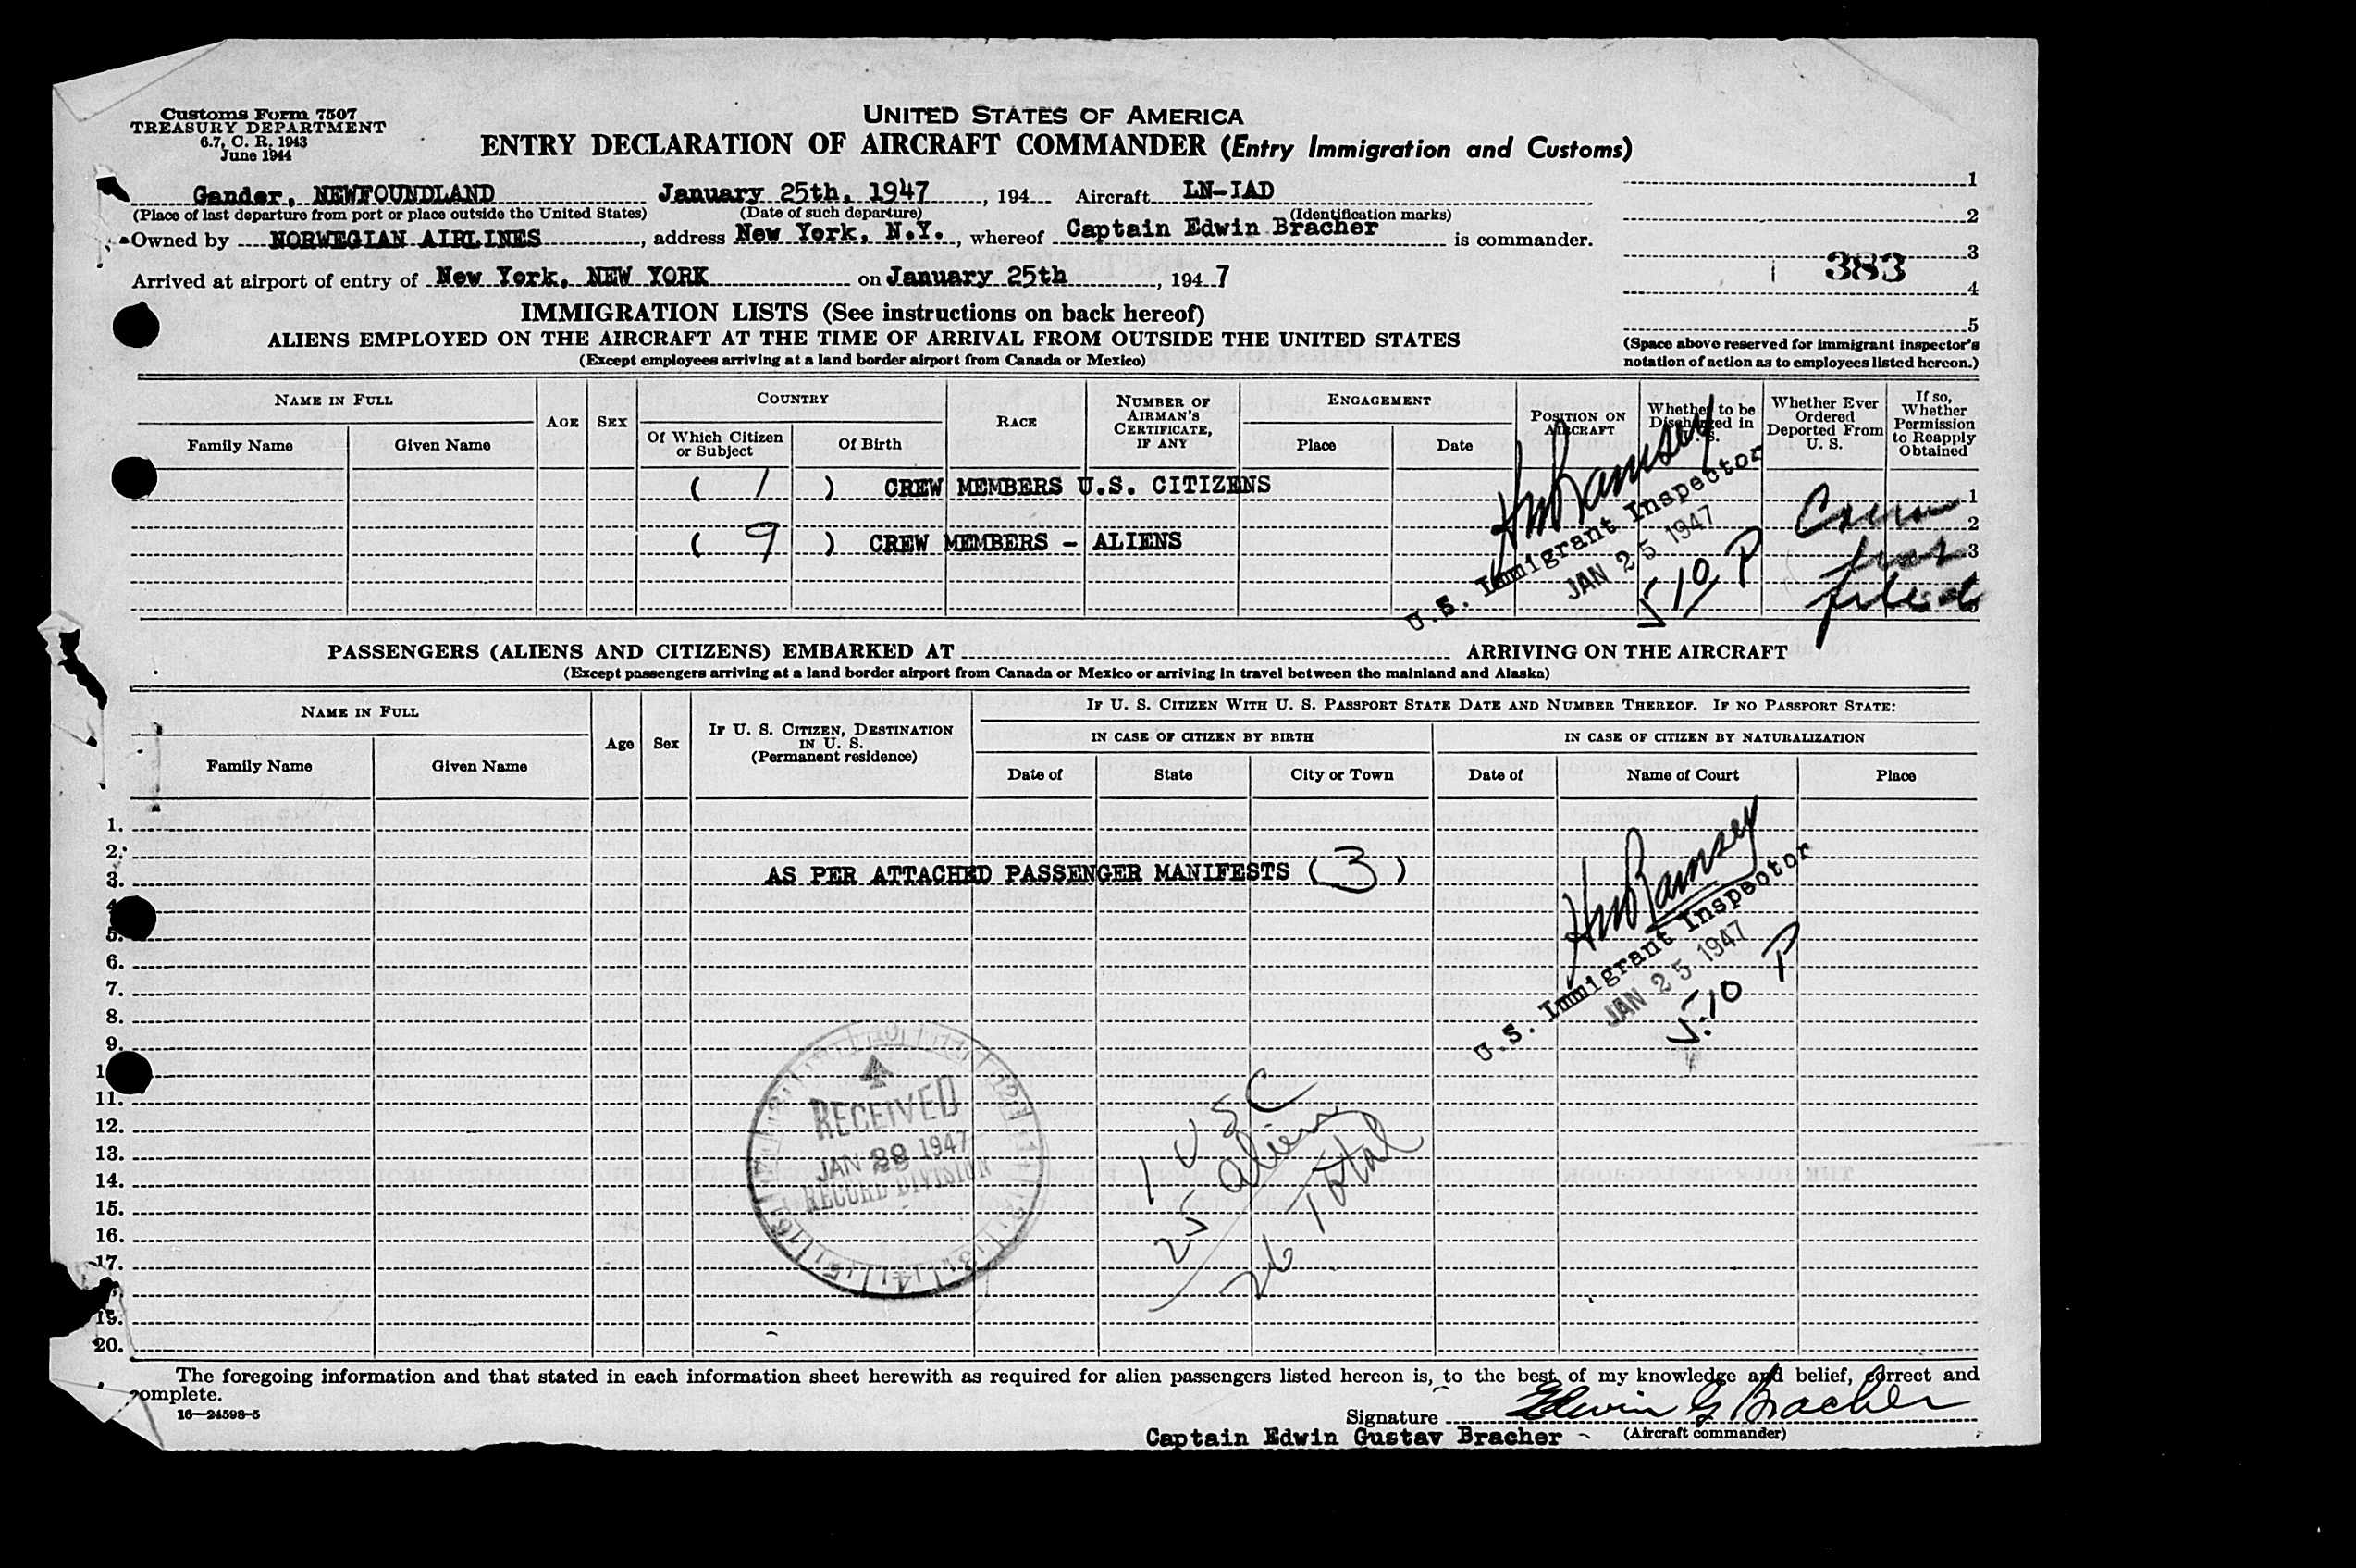 Customs Form 7507
TREASURY DEPARTMENT
6.7, C. R. 1943
June 1944
UNITED STATES OF AMERICA
ENTRY DECLARATION OF AIRCRAFT COMMANDER (Entry Immigration and Customs)
Gander, NEWFOUNDLAND January 25th, 1947, 194 Aircraft LN-IAD
(Place of last departure from port or place outside the United States) (Date of such departure) (Identification marks)
Owned by NORWEGIAN AIRLINES, address New York, N.Y., whereof Captain Edwin Bracher is commander.
Arrived at airport of entry of New York, NEW YORK on January 25th, 1947
1
2
3
383
4
5
(Space above reserved for immigrant inspector's
notation of action as to employees listed hereon.)
IMMIGRATION LISTS (See instructions on back hereof)
ALIENS EMPLOYED ON THE AIRCRAFT AT THE TIME OF ARRIVAL FROM OUTSIDE THE UNITED STATES
(Except employees arriving at a land border airport from Canada or Mexico)
NAME IN FULL
Family Name Given Name
AGE SEX
COUNTRY
Of Which Citizen or Subject
Of Birth
RACE
NUMBER OF AIRMAN'S CERTIFICATE, IF ANY
ENGAGEMENT
Place Date
POSITION ON AIRCRAFT
Whether to be Discharged in U. S.
Whether Ever Ordered Deported From U. S.
If so, Whether Permission to Reapply Obtained
( 1 ) CREW MEMBERS U.S. CITIZENS 1
2
( 9 ) CREW MEMBERS - ALIENS 3
HW Ramsey
U.S. Immigrant Inspector
JAN 25 1947
510 P
filed
PASSENGERS (ALIENS AND CITIZENS) EMBARKED AT ARRIVING ON THE AIRCRAFT
(Except passengers arriving at a land border airport from Canada or Mexico or arriving in travel between the mainland and Alaska)
NAME IN FULL
Family Name Given Name
Age Sex
IF U. S. CITIZEN, DESTINATION IN U. S.
(Permanent residence)
IF U. S. CITIZEN WITH U. S. PASSPORT STATE DATE AND NUMBER THEREOF. IF NO PASSPORT STATE:
IN CASE OF CITIZEN BY BIRTH IN CASE OF CITIZEN BY NATURALIZATION
Date of State City or Town Date of Name of Court Place
1.
2.
3. AS PER ATTACHED PASSENGER MANIFESTS (3)
5.
6.
7.
8.
9.
HW Ramsey
U.S. Immigrant Inspector
JAN 25 1947
5:10 P
1
11.
12.
13.
14.
15.
16.
17.
19.
20.
RECEIVED
JAN 28 1947
RECORD DIVISION
1 USC
25 alien
26 Total
The foregoing information and that stated in each information sheet herewith as required for alien passengers listed hereon is, to the best of my knowledge and belief, correct and
complete.
16—24598-5
Signature Edwin G Bracher
Captain Edwin Gustav Bracher - (Aircraft commander)